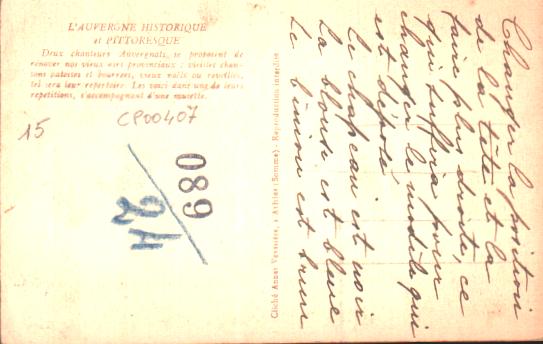 L'AUVERGNE HISTORIQUE
et PITTORESQUE
Deux chanteurs Auvergnats, se proposent de
rénover nos vieux airs provinciaux : vieilles chan-
sons patoises et bourrées, vieux noëls ou réveillez,
tel sera leur repertoire. Les voici dans une de leurs
repetitions, s'accompagnant d'une musette.
15
CP00407
24
680
Cliché Annet Veyssière, à Athies (Somme) - Reproduction interdite
Changer la position
de la tête et la
faire plus droite, ce
qui suffira pour
changer le modèle qui
est déposé
le chapeau est noir
la blouse est bleue
Le biniou est brun